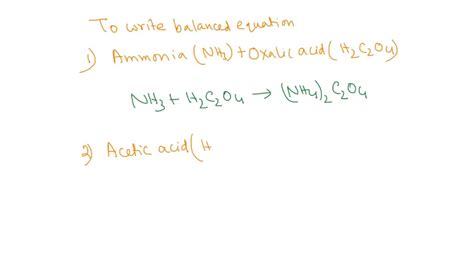 To write balanced equation
1) Ammonia (NH3) + Oxalic acid (H2C2O4)
NH3 + H2C2O4 → (NH4)2 C2O4
2) Acetic acid (H